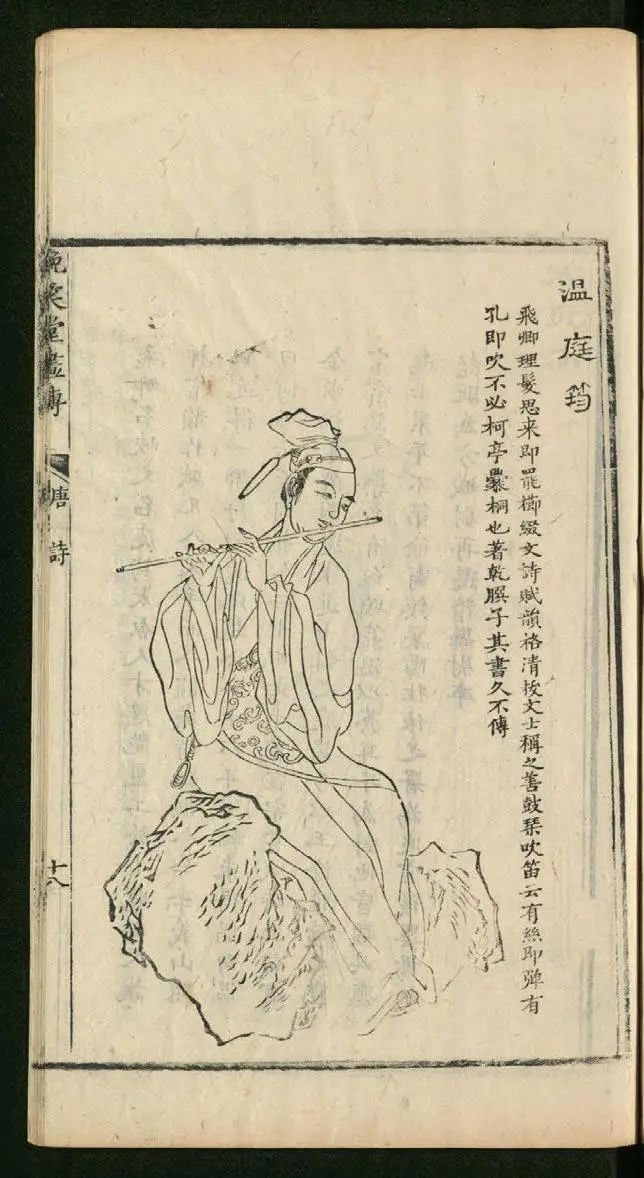 温庭筠
飛卿理髮思来即罷櫛綴文詩賦韻格清拔文士稱之善鼓琴吹笛云有絲即弹有
孔即吹不必柯亭爨桐也著乾𦠆子其書久不傳
晚笑堂畫傳
唐詩
十八